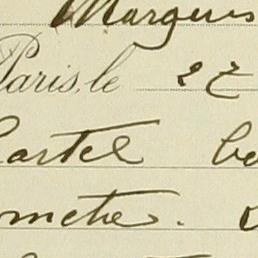 Marques
Paris, le 27
Cartel be
metre.